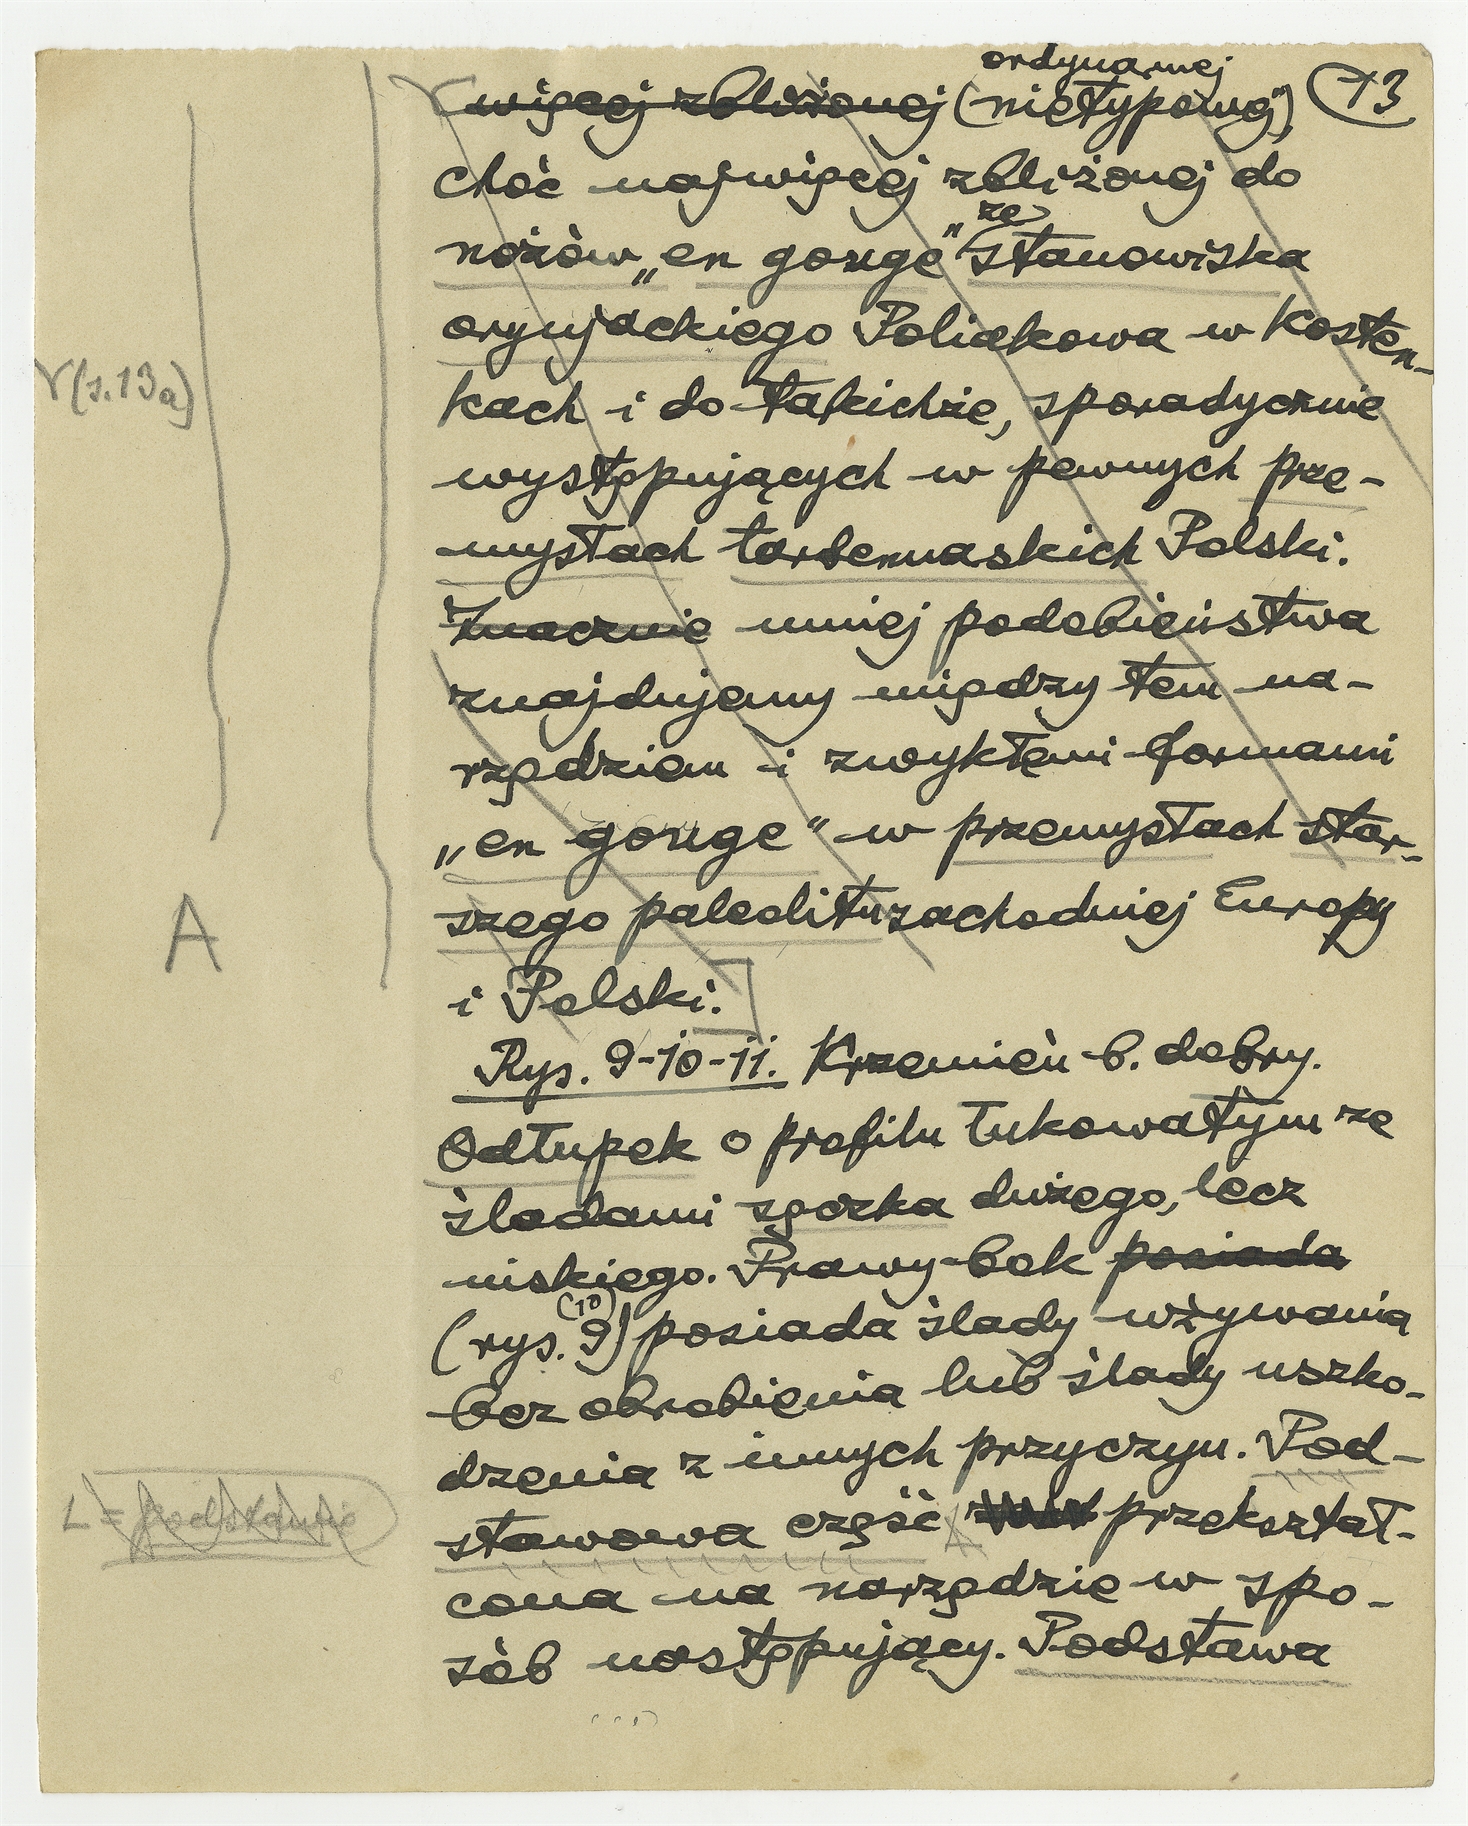 13
ordynarnej
więcej zbliżonej (nietypowej)
choć najwięcej zbliżonej do
ze
nożów „en gouge” stanowiska
oryniackiego Poliakowa w Kosten-
kach i do takichże, sporadycznie
występujących w pewnych prze-
mysłach tardenuaskich Polski.
Znacznie mniej podobieństwa
znajdujemy między tem na-
rzędziem i zwykłemi formami
„en gouge” w przemysłach star-
szego paleolitu zachodniej Europy
i Polski.
Rys. 9-10-11. Krzemień b. dobry.
Odłupek o profilu łukowatym ze
śladami sęczka dużego, lecz
niskiego. Prawy bok posiada
(10)
(rys. 9) posiada ślady używania
bez obrobienia lub ślady uszko-
dzenia z innych przyczyn. Pod-
stawowa część przekształ-
cona na narzędzie w spo-
sób następujący. Podstawa
(s. 13a)
A
L = podstawie